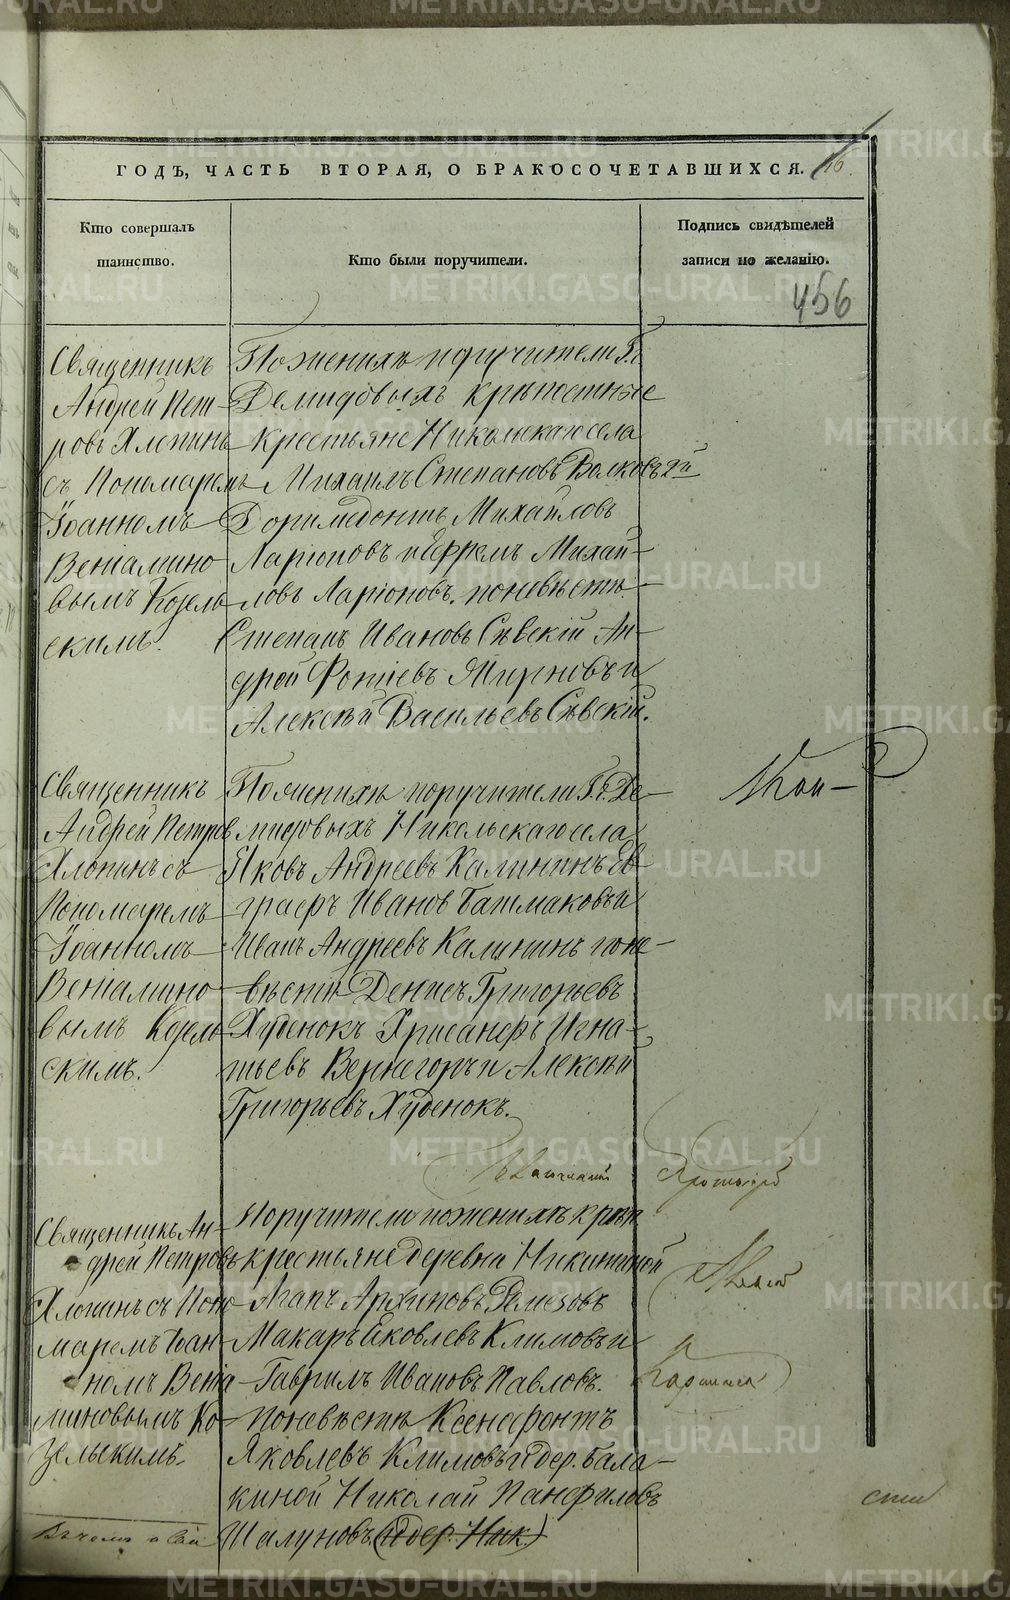 ГОДЪ, ЧАСТЬ ВТОРАЯ, О БРАКОСОЧЕТАВШИХСЯ.
16
Кто совершалъ
таинство.
Кто были поручители.
Подпись свидѣтелей
записи по желанію.
456
Священникъ
Андрей Пет-
ровъ Хлопинъ
съ Пономаремъ
Іоанномъ
Веніамино
вымъ Козель
скимъ.
По женихѣ поручители Гг.
Демидовыхъ крѣпостные
крестьяне Никольскаго села
Михаилъ Степановъ Волковъ 2й
Доримедонтъ Михайловъ
Ларіоновъ и Ефремъ Михай-
ловъ Ларіоновъ. по невѣстѣ
Степанъ Ивановъ Сѣвскій Ан-
дрей Фотіевъ и
Алексѣй Васильевъ Сѣвскій.
Священникъ
Андрей Петров
Хлопинъ съ
Пономаремъ
Іоанномъ
Веніамино
вымъ Козель
скимъ.
По женихѣ поручители Гг. Де-
мидовыхъ Никольскаго села
Яковъ Андреевъ Калининъ Ев-
графъ Иванов Башмаковъ и
Иванъ Андреевъ Калининъ по не-
вѣстѣ Денисъ Григорьевъ
Худенокъ Хрисанфъ Игна-
тьевъ Вернегоръ и Алексѣй
Григорьевъ Худенокъ.
Священникъ Ан-
дрей Петровъ
Хлопинъ съ Поно
маремъ Іоан-
номъ Веніа-
миновымъ Ко-
зельскимъ.
Поручители по женихѣ крѣп
крестьяне деревни Никитиной
Агапъ Архиповъ Ремезовъ
Макаръ Яковлевъ Климовъ и
Гаврилъ Ивановъ Павловъ.
по невѣстѣ Ксенофонтъ
Яковлевъ Климовъ и дер. Бала-
киной Николай Панфиловъ
Шалуновъ (и дер. Ник.)
Протоіерей
METRIKI.GASO-URAL.RU